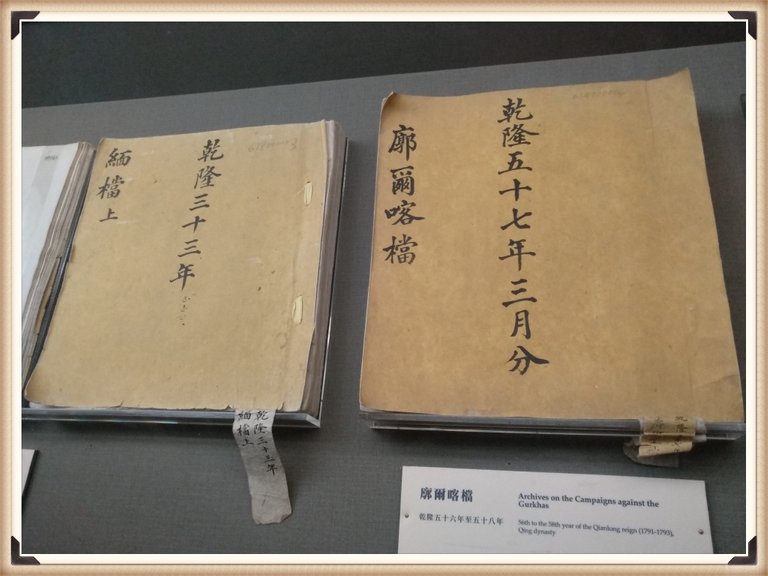 緬檔上
乾隆三十三年
乾隆三十三年
緬檔上
廓爾喀檔
乾隆五十七年三月分
廓爾喀檔
乾隆五十六年至五十八年
Archives on the Campaigns against the
Gurkhas
56th to the 58th year of the Qianlong reign (1791-1793),
Qing dynasty